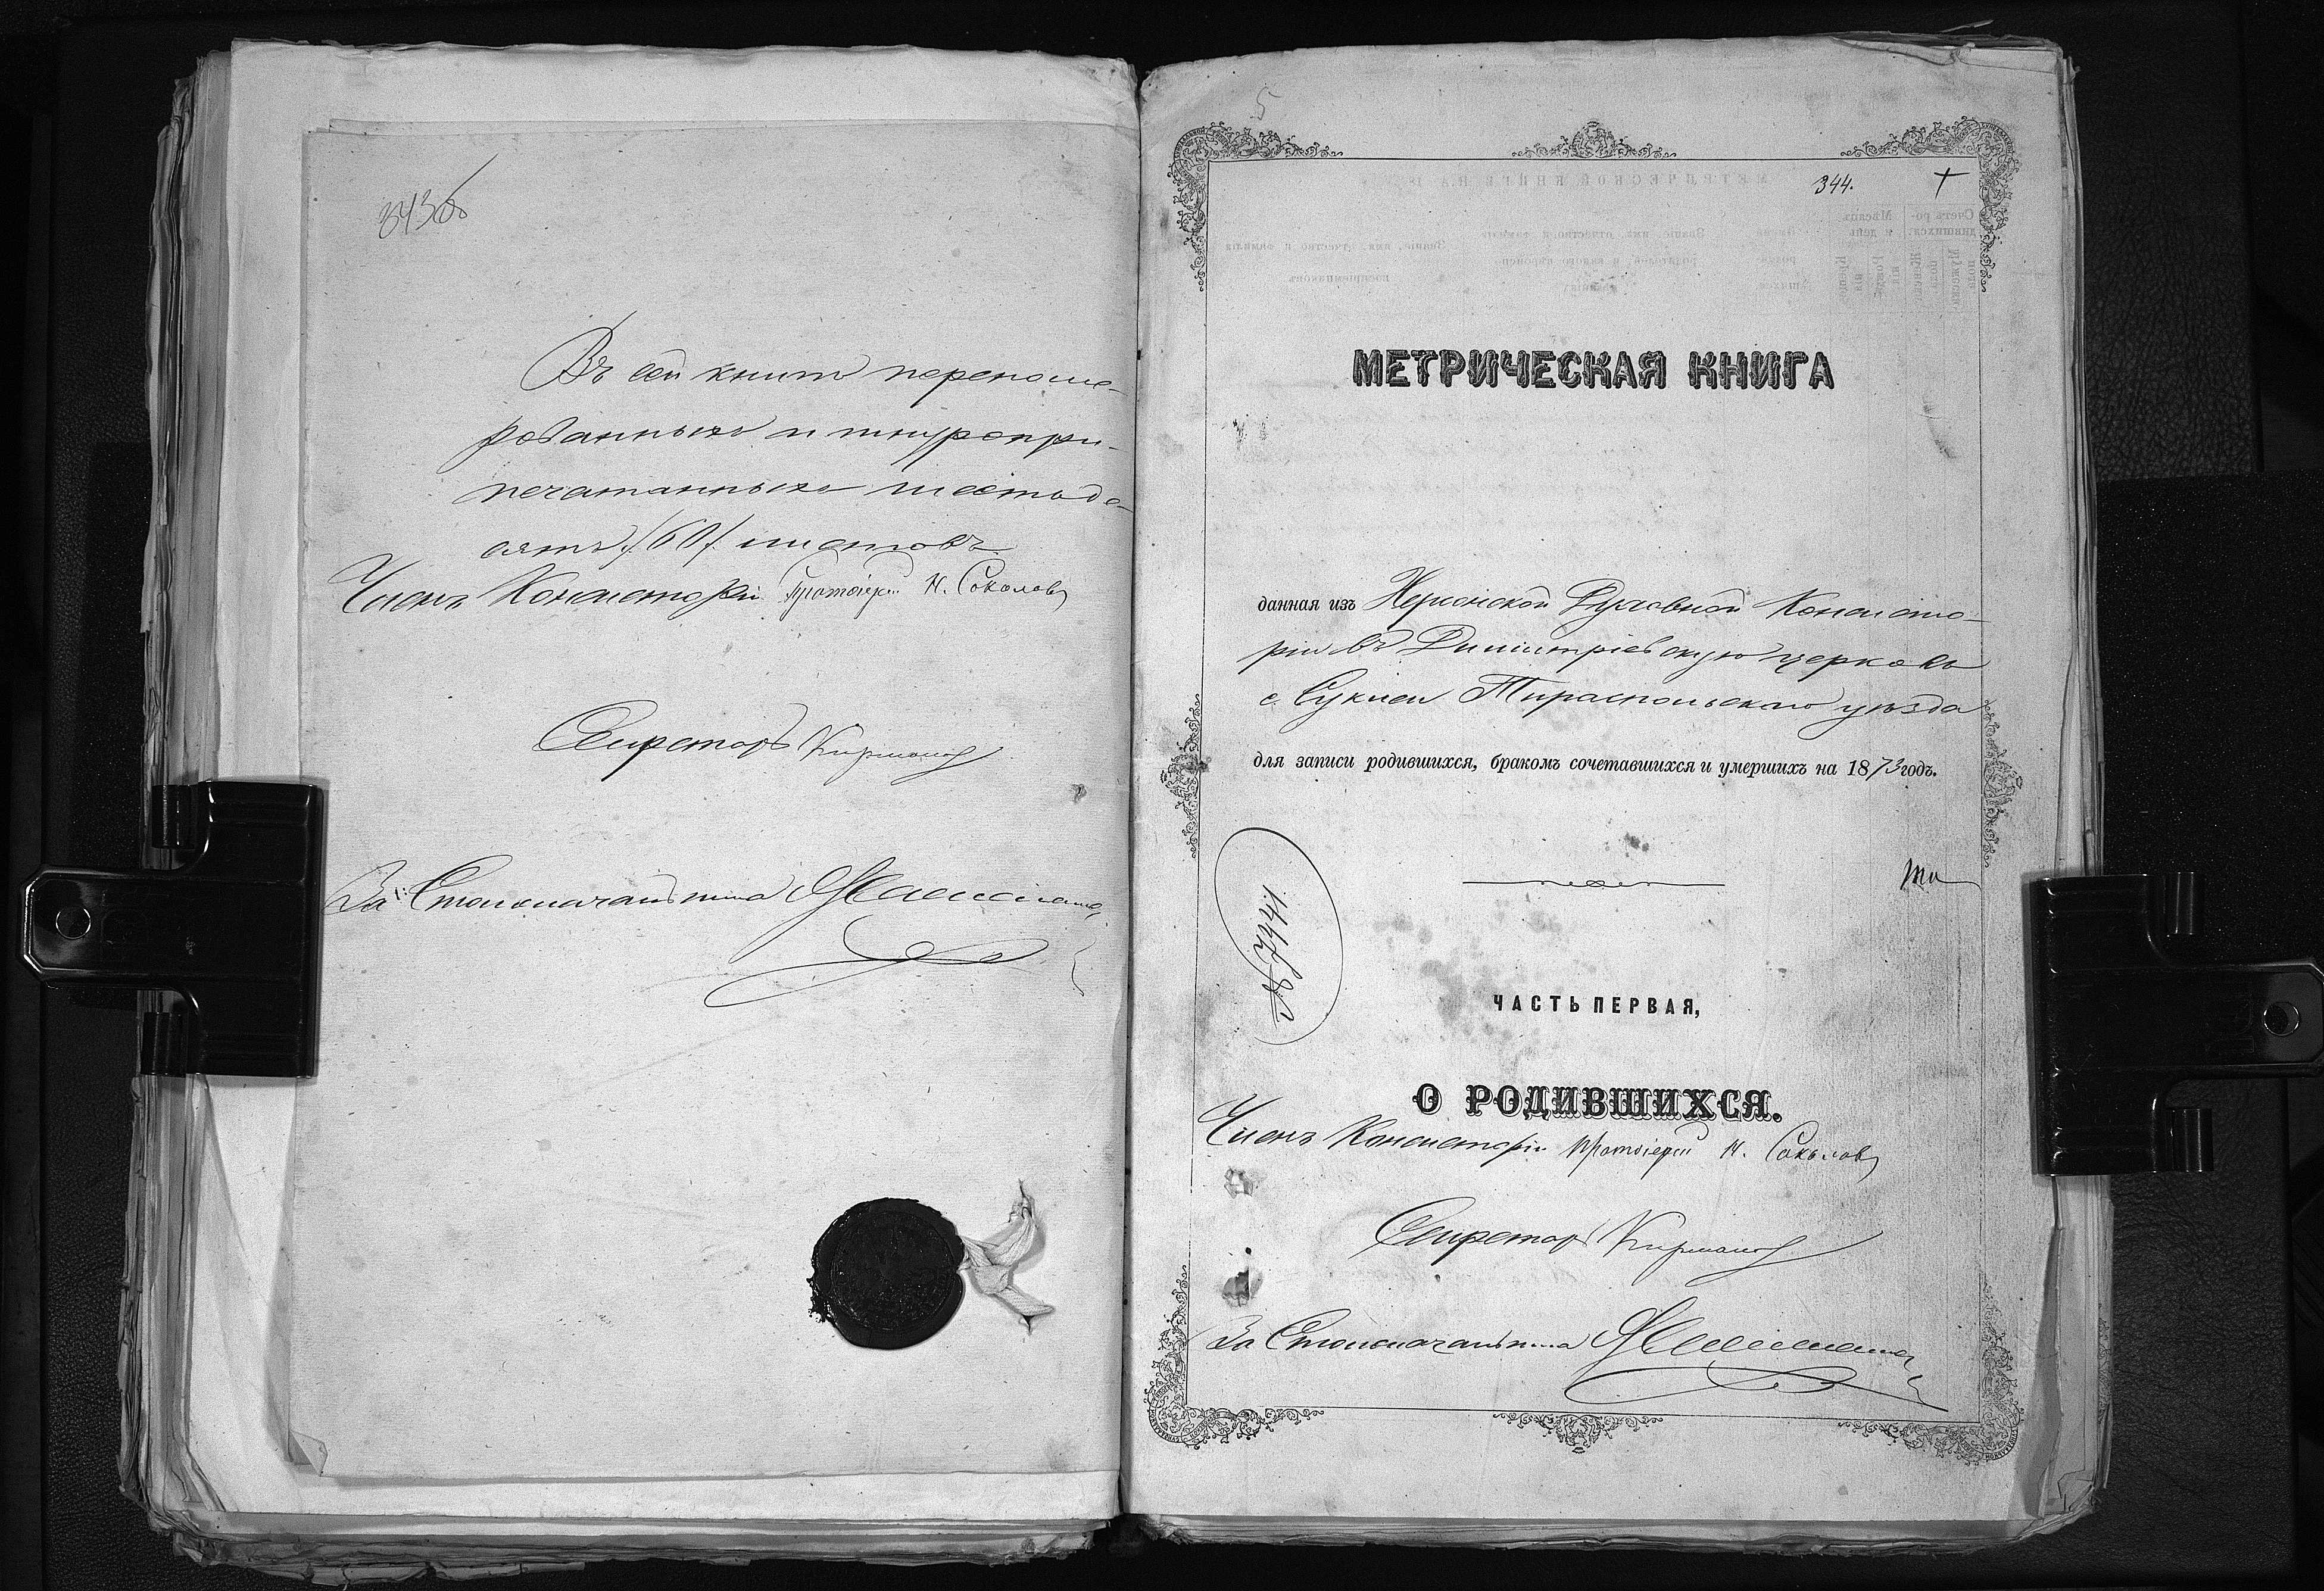 343об
Въ сей книгѣ перенуме-
рованныхъ и шнуропри-
печатанныхъ шестьде-
сятъ /60/ листовъ.
Членъ Консисторіи Протоіерей Н. Соколовъ
Секретарь
За Столоначальника
5
344.
МЕТРИЧЕСКАЯ КНИГА
данная изъ Херсонской Духовной Консисто-
ріи въ Димитріевскую церковь
с. Суклеи Тираспольскаго уѣзда
для записи родившихся, бракомъ сочетавшихся и умершихъ на 1873 годъ.
№ 7441
ЧАСТЬ ПЕРВАЯ,
О РОДИВШИХСЯ.
Членъ Консисторіи Протоіерей Н. Соколовъ
Секретарь
За Столоначальника